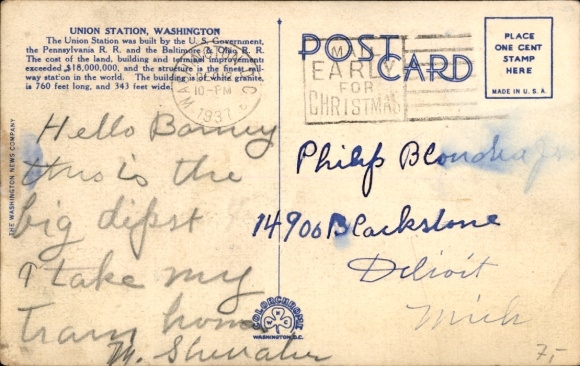 UNION STATION, WASHINGTON
The Union Station was built by the U. S. Government,
the Pennsylvania R. R. and the Baltimore & Ohio R. R.
The cost of the land, building and terminal improvements
exceeded $18,000,000, and the structure is the finest rail-
way station in the world. The building is of white granite,
is 760 feet long, and 343 feet wide.
WASHINGTON
D C
10-PM
1937
MAIL
EARLY
FOR
CHRISTMAS
POST CARD
PLACE
ONE CENT
STAMP
HERE
MADE IN U. S. A.
THE WASHINGTON NEWS COMPANY
Hello Barney
this is the
big dipst
I take my
train home
M.
Philip
14900 Blackstone
Detroit
Mich
COLORCHROME
WASHINGTON, D.C.
7,-